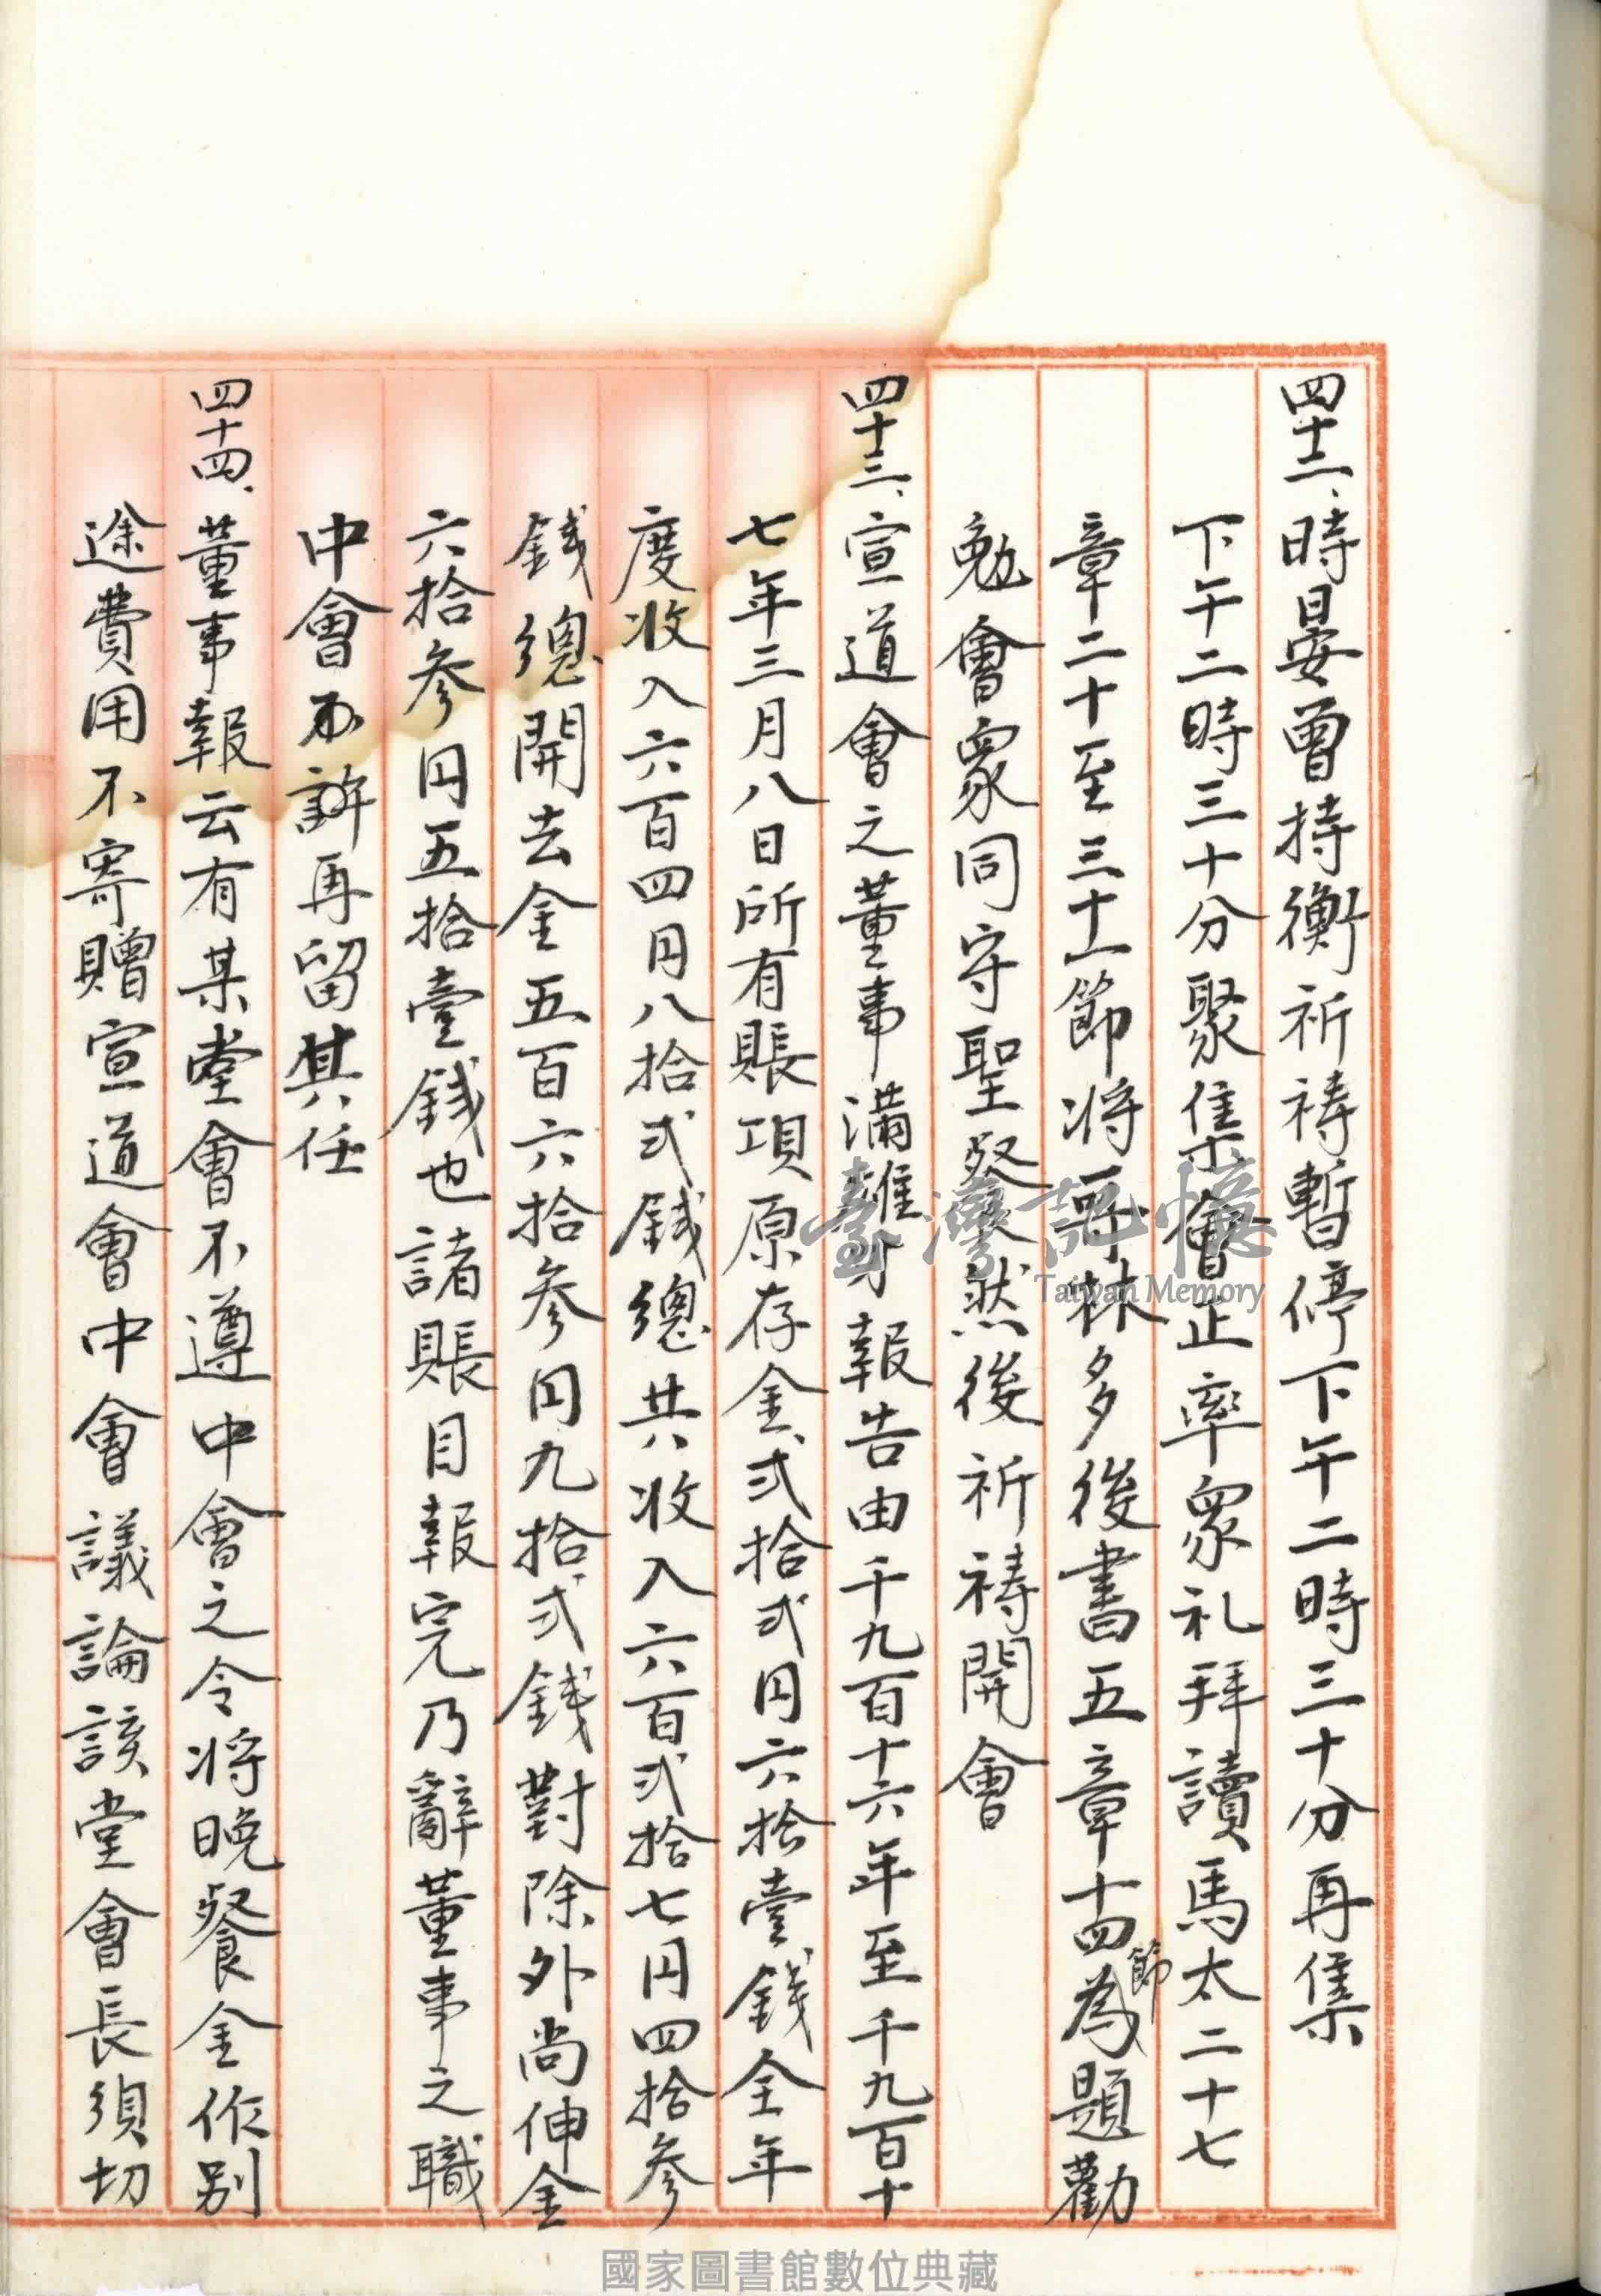 四十二、時晏曾持衡祈祷暫停下午二時三十分再集
下午二時三十分聚集會正率眾礼拜讀馬太二十七
章二十至三十一節将哥林多後書五章十四節為題勸
勉會眾同守聖餐然後祈祷開會
四十三、宣道會之董事滿雛才報告由千九百十六年至千九百十
七年三月八日所有賬項原存金弍拾弍円六拾壹錢全年
度收入六百四円八拾弍錢總共收入六百弍拾七円四拾参
錢總開去金五百六拾参円九拾弍錢對除外尚伸金
六拾参円五拾壹錢也諸賬目報完乃辭董事之職
中會不許再留其任
四十四、董事報云有某堂會不遵中會之令将晚餐金作別
途費用不寄贈宣道會中會議論該堂會長須切
臺灣記憶
Taiwan Memory
國家圖書館數位典藏